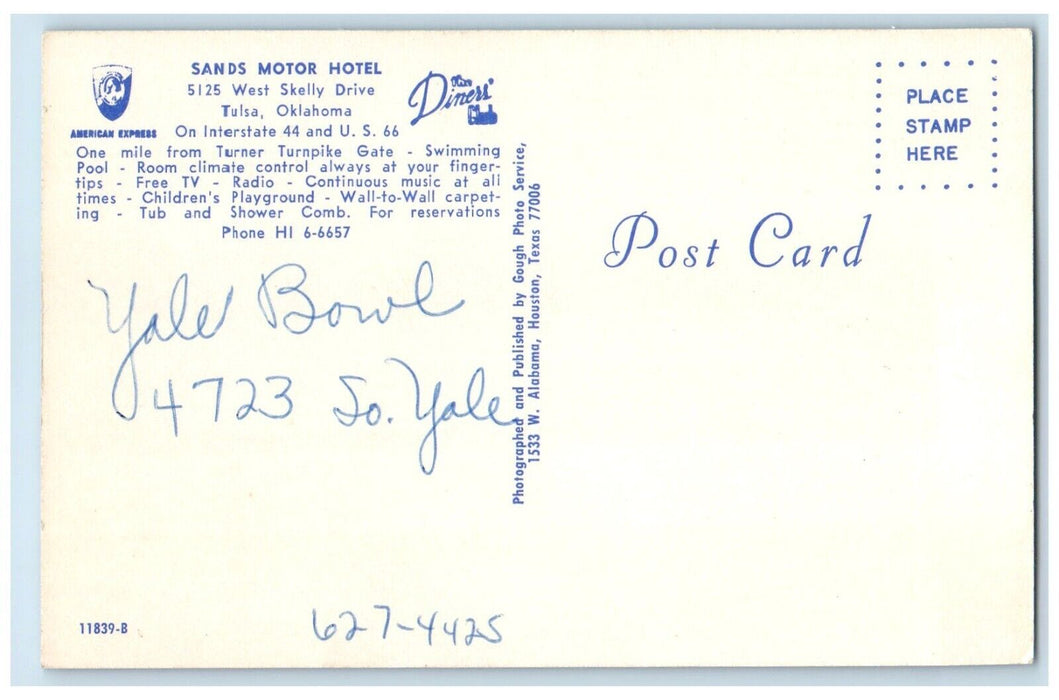 SANDS MOTOR HOTEL
5125 West Skelly Drive
Tulsa, Oklahoma
On Interstate 44 and U. S. 66
AMERICAN EXPRESS
The
Diners'
Club
One mile from Turner Turnpike Gate - Swimming
Pool - Room climate control always at your finger-
tips - Free TV - Radio - Continuous music at all
times - Children's Playground - Wall-to-Wall carpet-
ing - Tub and Shower Comb. For reservations
Phone HI 6-6657
Yale Bowl
4723 So. Yale
627-4425
11839-B
Photographed and Published by Gough Photo Service,
1533 W. Alabama, Houston, Texas 77006
PLACE
STAMP
HERE
Post Card